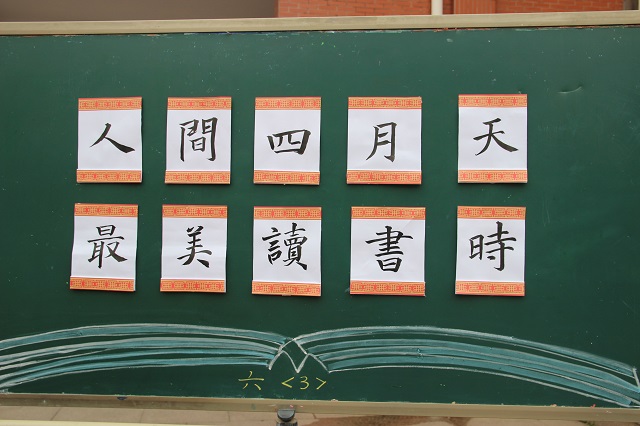 人間四月天
最美讀書時
六<3>